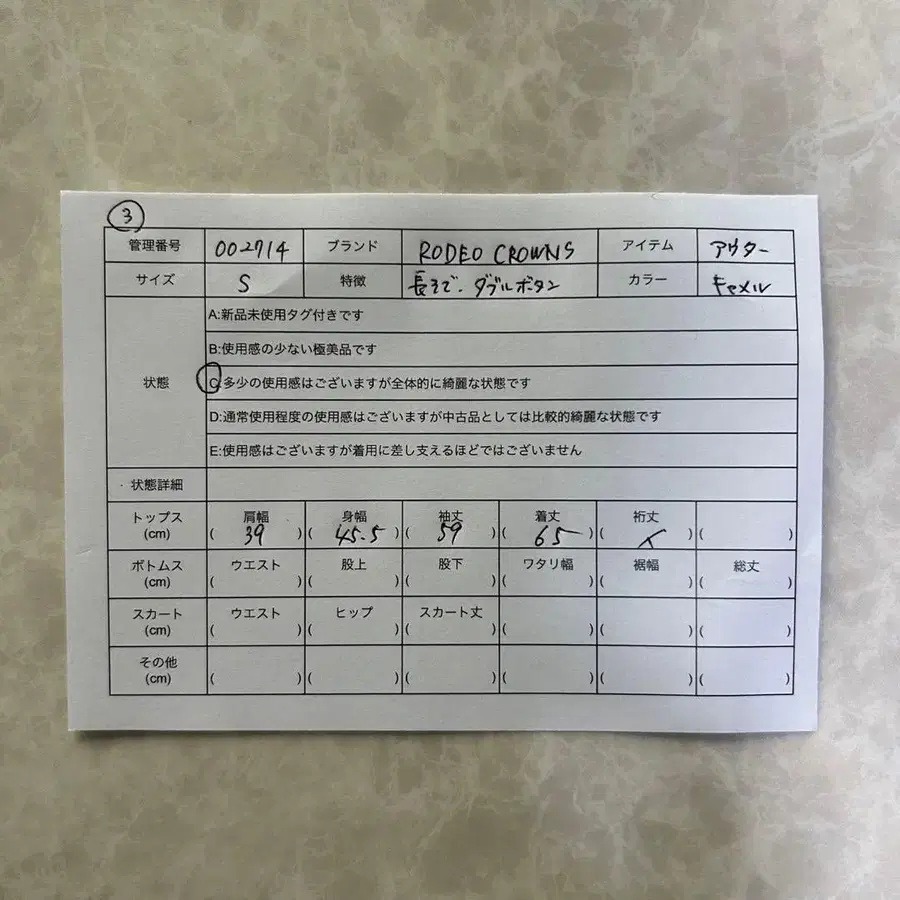 ③
管理番号 002714 ブランド RODEO CROWNS アイテム アウター
サイズ S 特徴 長そで.ダブルボタン カラー キャメル
状態
A:新品未使用タグ付きです
B:使用感の少ない極美品です
C:多少の使用感はございますが全体的に綺麗な状態です
D:通常使用程度の使用感はございますが中古品としては比較的綺麗な状態です
E:使用感はございますが着用に差し支えるほどではございません
状態詳細
トップス 肩幅 身幅 袖丈 着丈 裄丈
(cm) ( 39 ) ( 45.5 ) ( 59 ) ( 65 ) ( ) ( )
ボトムス ウエスト 股上 股下 ワタリ幅 裾幅 総丈
(cm) ( ) ( ) ( ) ( ) ( ) ( )
スカート ウエスト ヒップ スカート丈
(cm) ( ) ( ) ( ) ( ) ( ) ( )
その他
(cm) ( ) ( ) ( ) ( ) ( ) ( )